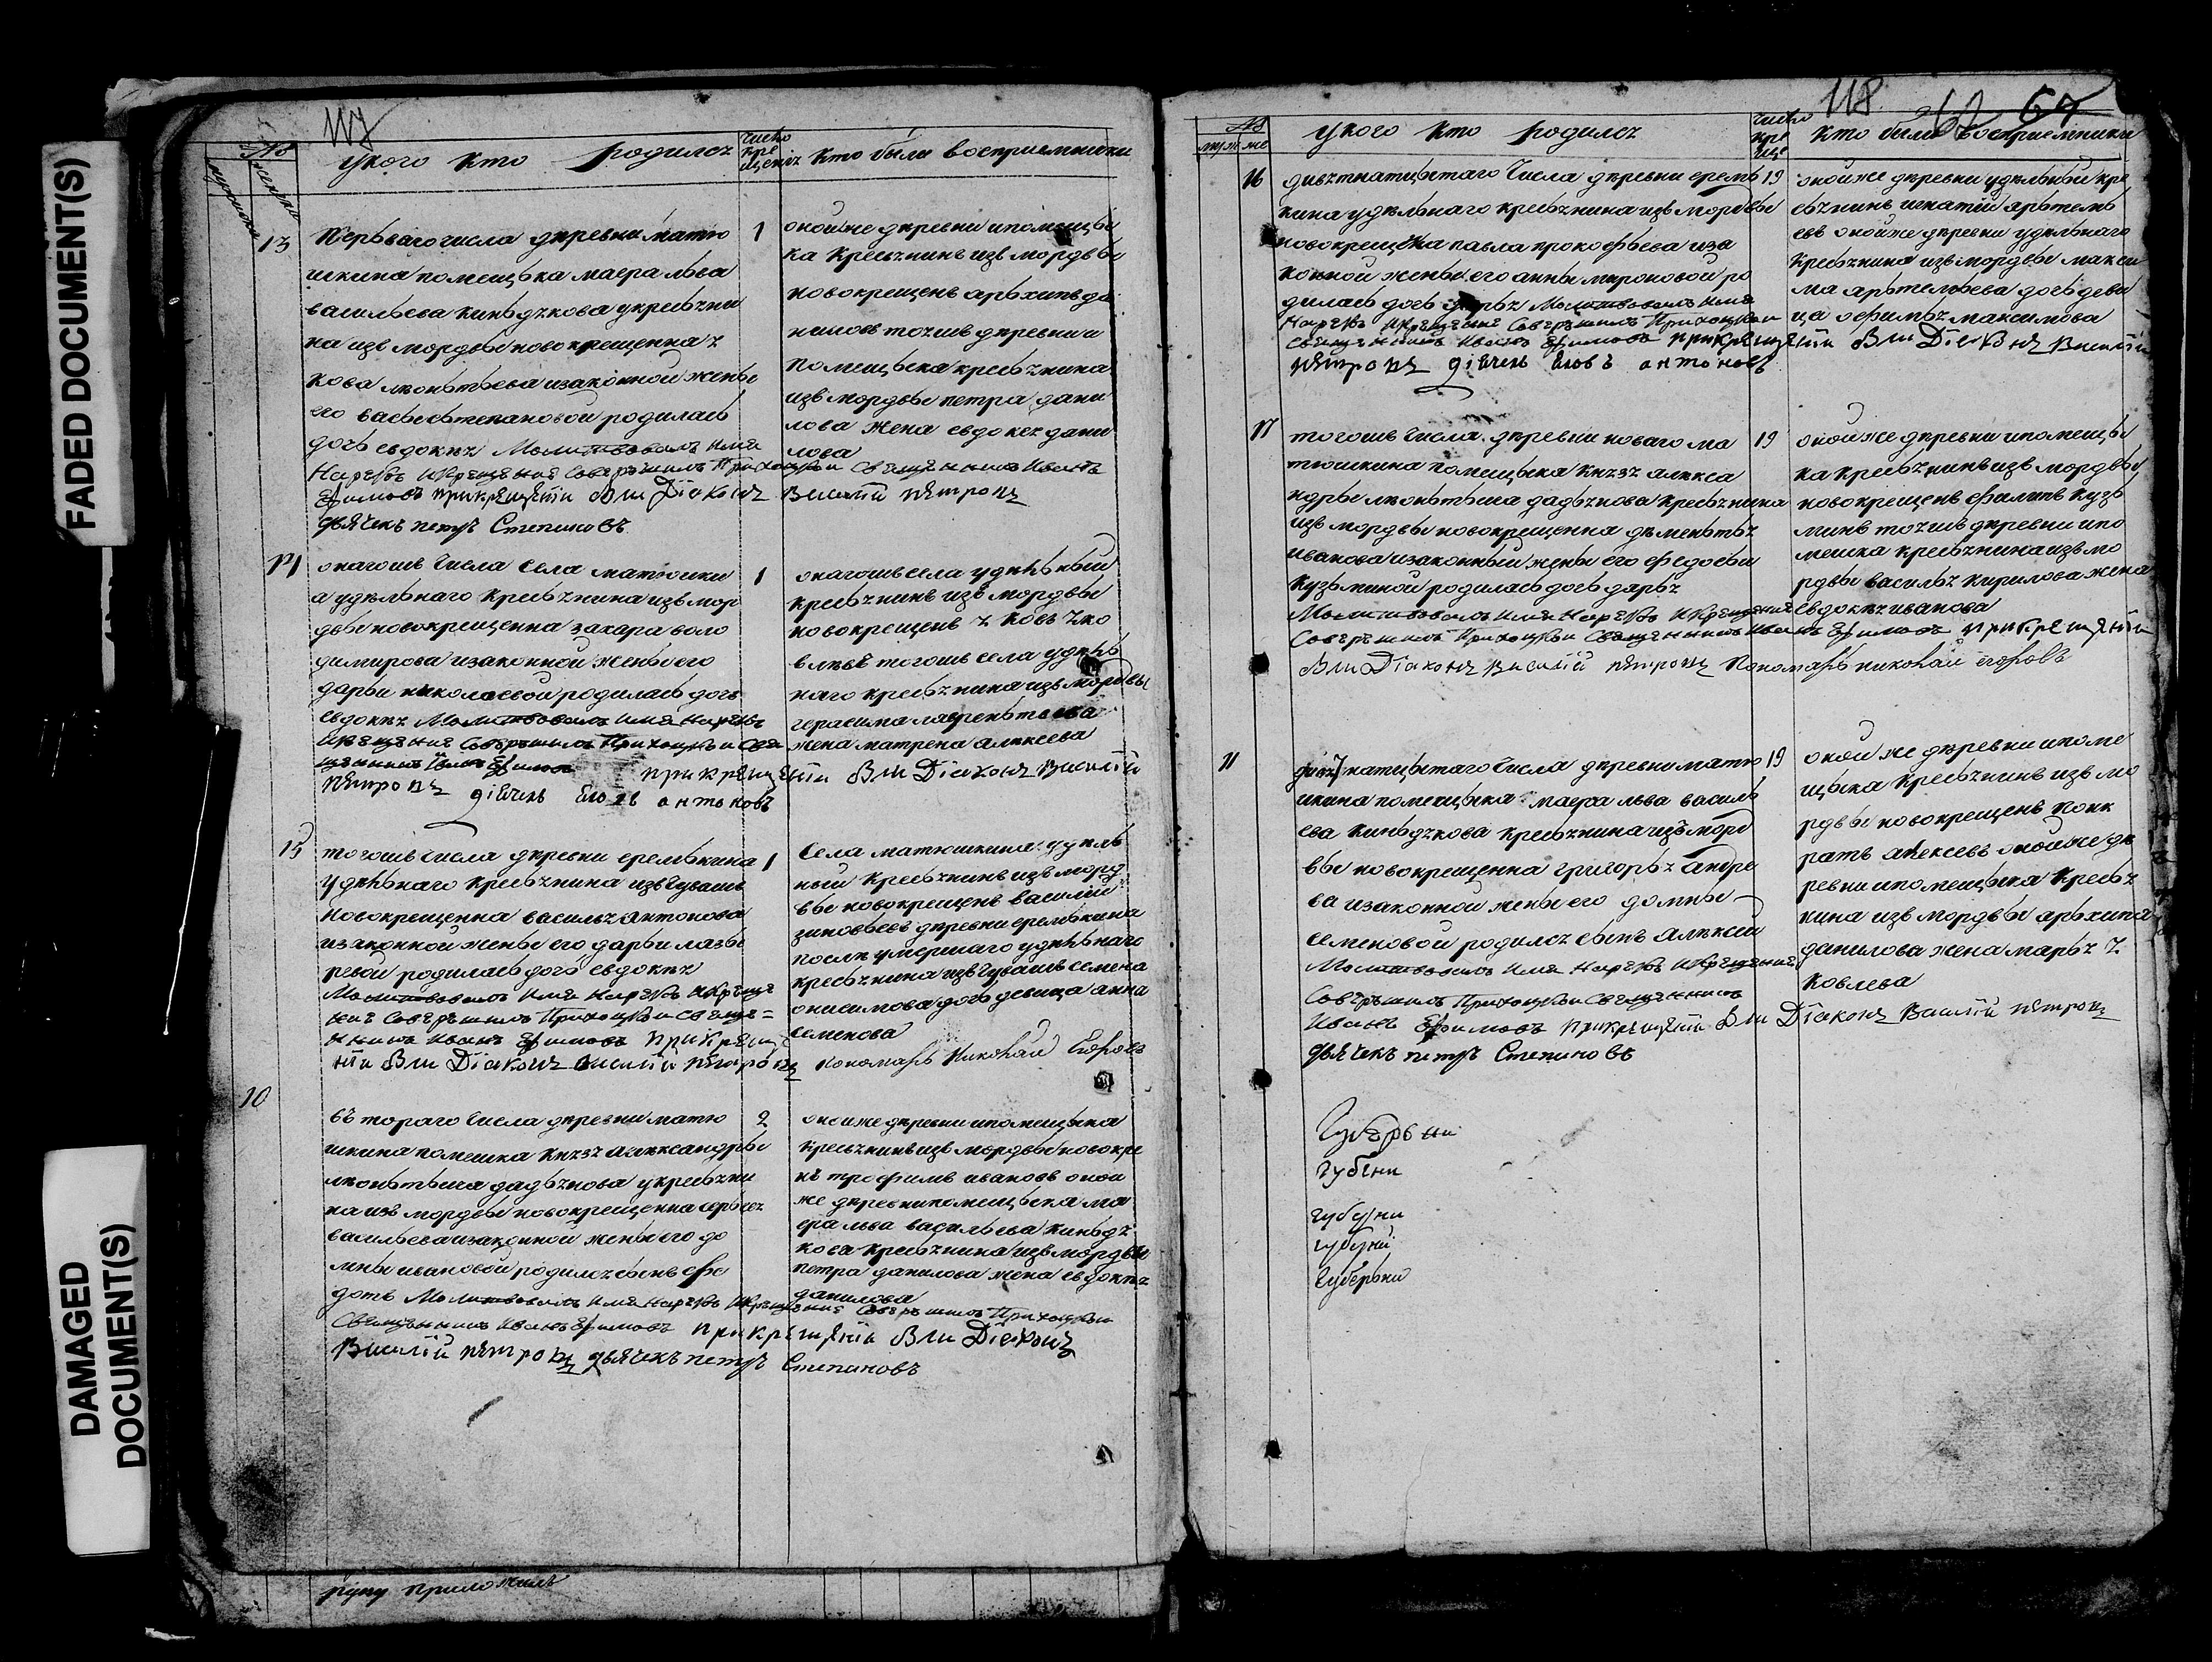 FADED DOCUMENT(S)
DAMAGED DOCUMENT(S)
117
№
мужска
женска
укого кто родилсѧ
число кре щениѧ
кто были восприемники
13
перьваго числа деревни матю
шкина помещька маера льва
васильева киньдѧкова укресьѧни
на изъ мордвы новокрещенна ѧ
кова леоньтьева изаконной жены
его васьсы степановой родилась
дочь евдокеѧ Молитвовалъ имя
Нарекъ и крещение совершилъ Приходцкои Священникъ Иванъ
Ефимовъ при крещении был Диаконъ Василий петровъ
дьячекъ петръ Степановъ
1
оной же деревни и помещьи
ка кресьѧнинъ изъ мордвы
новокрещенъ арьхипъ да
ниловъ тоѧшъ деревни и
помещька кресьѧнина
изъ мордвы петра дани
лова жена евдокеѧ дани
лова
14
онагошъ числа села матюшки
а удельнаго кресьѧнина изъ мор
двы новокрещенна захара воло
димирова изаконной жены его
дарьи николаевой родилась дочь
евдокеѧ Молитвовалъ имя нарекъ
и крещение совершилъ Приходцкои Свя
щенникъ Иванъ Ефимовъ при крещении был Диаконъ Василий
петровъ дiячекъ Яковъ антоновъ
1
онагошъ села удельный
кресьѧнинъ изъ мордвы
новокрещенъ ѧковъ ѧко
влевъ тогошъ села удель
наго кресьѧнина изъ мордвы
герасима лаврентьева
жена матрена алексеева
15
тогошъ числа деревни еремькина
удельнаго кресьѧнина изъ чувашъ
новокрещенна васильѧ антонова
изаконной жены его дарьи лазы
ревой родилась дочь евдокеѧ
Молитвовалъ имя нарекъ и креще
ние совершилъ Приходцкои Свяще=
нникъ Иванъ Ефимовъ при креще
нии был Диаконъ Василий петровъ пономарь Николай Егоровъ
1
села матюшкина удель
ный кресьѧнинъ изъ морд
вы новокрещенъ василий
зиновьевъ деревни еремькина
после умершаго удельнаго
кресьѧнина изъ чувашъ семена
онисимова дочь девица анна
семенова
10
въ тораго числа деревни матю
шкина помешка кнѧзѧ александры
леоньтьича дадьѧнова укресьѧни
на изъ мордвы новокрещенна сергеѧ
васильева изаконной жены его до
мны ивановой родилсѧ сынъ фе
дотъ Молитвовалъ имя нарекъ и крещение совершилъ Приходцкои
Священникъ Иванъ Ефимовъ при крещении был Диаконъ
Василий петровъ дьячекъ петръ Степановъ
2
оной же деревни и помещька
кресьѧнинъ изъ мордвы новокре
нъ трофимъ ивановъ оной
же деревни помещька ма
ера льва васильева киньдѧ
кова кресьѧнина изъ мордвы
петра данилова жена евдокеѧ
данилова
руку приложилъ
118
62
67
№
муж же
укого кто родилсѧ
число кре ще
кто были восприемники
16
девѧтнатцытаго числа деревни еремь
кина удельнаго кресьѧнина изъ мордвы
новокрещена павла прокофьева иза
конной жены его анны мироновой ро
дилась дочь дарьѧ Молитвовалъ имя
Нарекъ и крещение совершилъ Приходцкои
Священникъ Иванъ Ефимовъ при крещении был Диаконъ Василий
петровъ дiячекъ Яковъ антоновъ
19
оной же деревни удельной кре
сьѧнинъ игнатий арьтемь
евъ оной же деревни удельнаго
кресьѧнина изъ мордвы макси
ма арьтемьева дочь деви
ца офимьѧ максимова
17
тогошъ числа деревни новаго ма
тюшкина помещька кнѧзѧ алекса
ндры леоньтьича дадьѧнова кресьѧнина
изъ мордвы новокрещенна деменьтьѧ
иванова изаконный жены его федосьи
кузьминой родилась дочь дарьѧ
Молитвовалъ имя нарекъ и крещение
совершилъ Приходцкои Священникъ Иванъ Ефимовъ при крещении
был Диаконъ Василий петровъ Пономарь николай егоровъ
19
оной же деревни и помещьи
ка кресьѧнинъ изъ мордвы
новокрещенъ филипъ кузь
минъ тоѧшъ деревни и по
мешка кресьѧнина изъ мо
рдвы васильѧ кирилова жена
евдокеѧ иванова
11
девѧтнатцытаго числа деревни матю
шкина помещька маера льва василь
ева киньдѧкова кресьѧнина изъ морд
вы новокрещенна григорьѧ андре
ва изаконной жены его домны
семеновой родилсѧ сынъ алексей
Молитвовалъ имя нарекъ и крещение
совершилъ Приходцкои Священникъ
Иванъ Ефимовъ при крещении был Диаконъ Василий петровъ
дьячекъ петръ Степановъ
19
оной же деревни и поме
щька кресьѧнинъ изъ мо
рдвы новокрещенъ понк
рать алексевъ оной же де
ревни и помещька кресьѧ
нина изъ мордвы арьхипа
данилова жена марьѧ ѧ
ковлева
Губерьни
губени
губурни
губурни
Губерьни